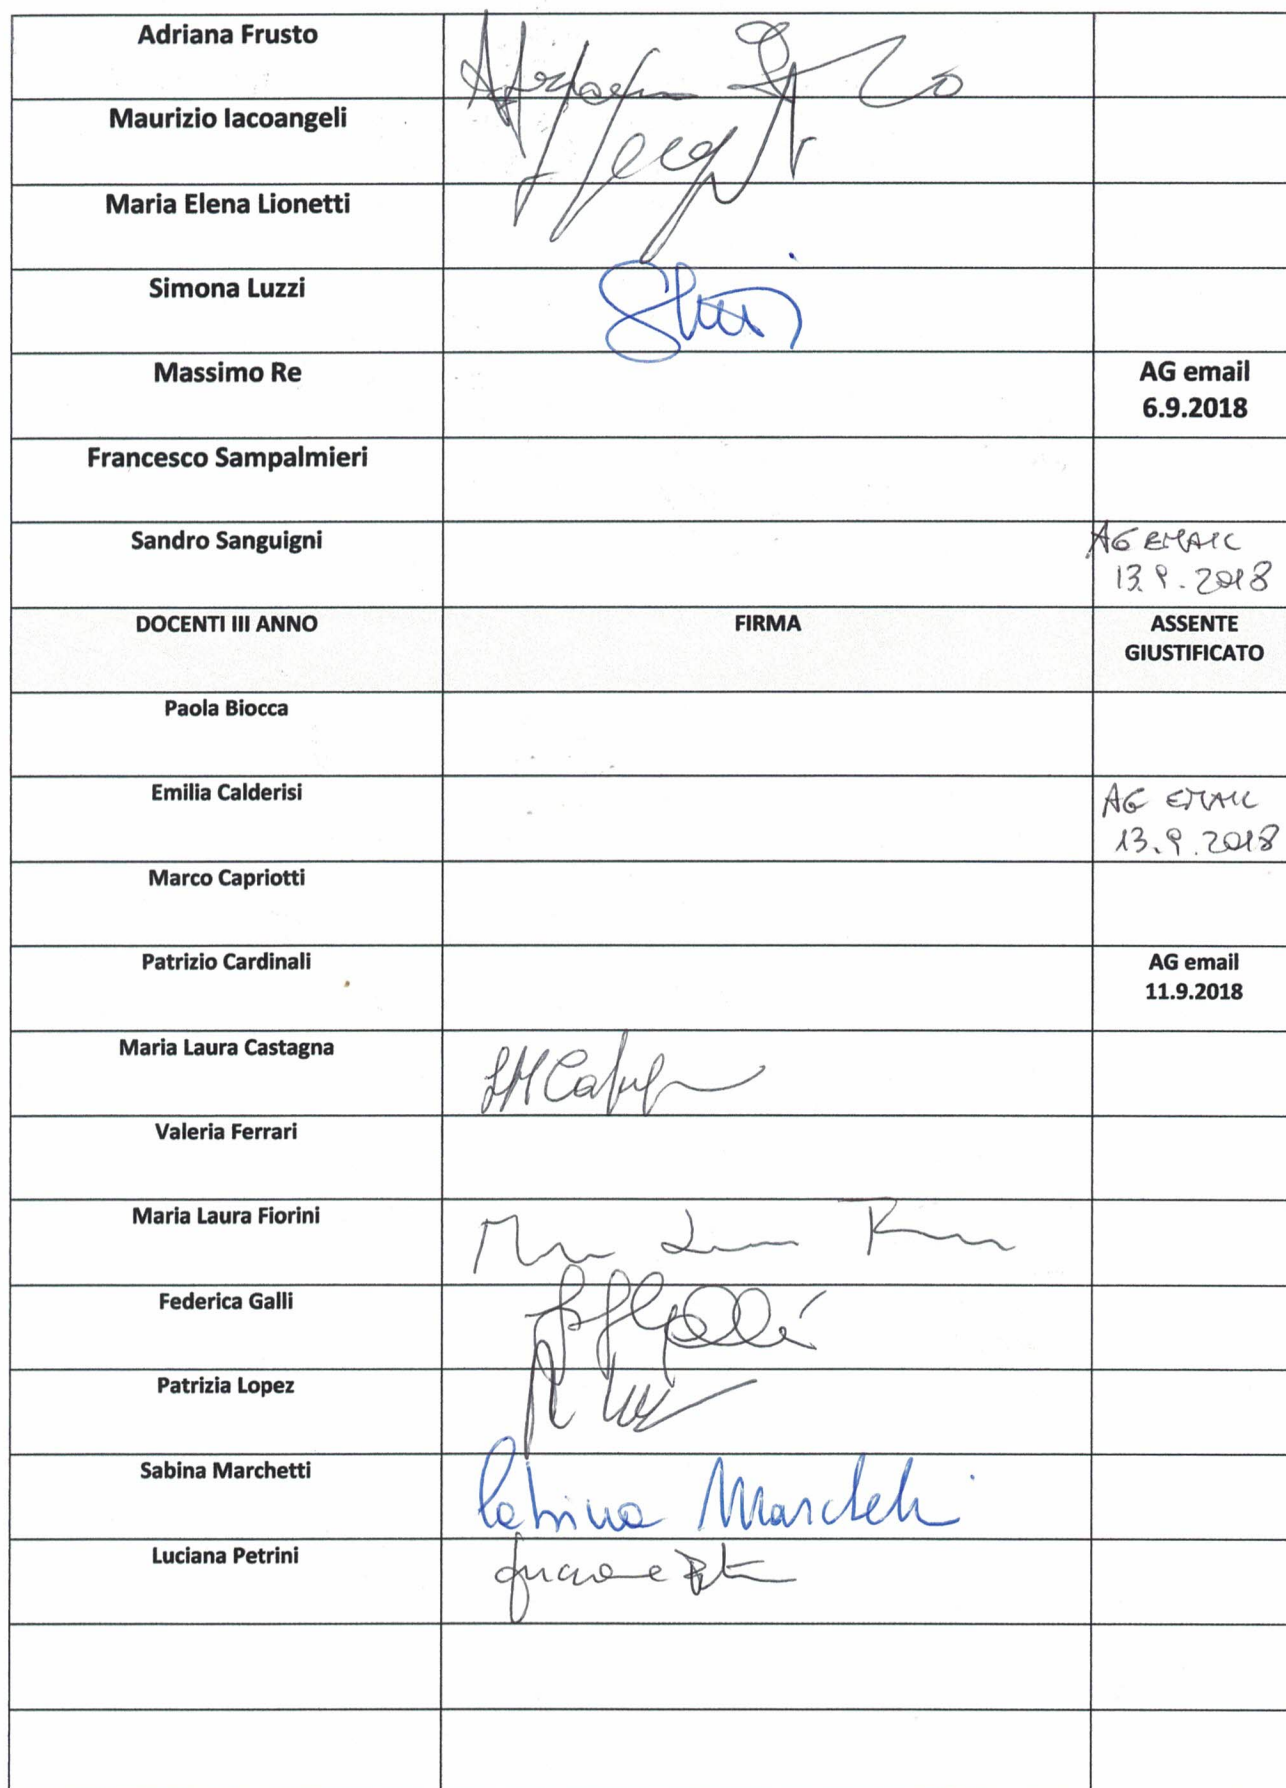 Adriana Frusto
Maurizio Iacoangeli
Maria Elena Lionetti
Simona Luzzi
Massimo Re
AG email
6.9.2018
Francesco Sampalmieri
Sandro Sanguigni
AG EMAIL
13.9.2018
DOCENTI III ANNO FIRMA ASSENTE
GIUSTIFICATO
Paola Biocca
Emilia Calderisi
AG EMAIL
13.9.2018
Marco Capriotti
Patrizio Cardinali
AG email
11.9.2018
Maria Laura Castagna
Valeria Ferrari
Maria Laura Fiorini
Federica Galli
Patrizia Lopez
Sabina Marchetti Sabina Marchetti
Luciana Petrini